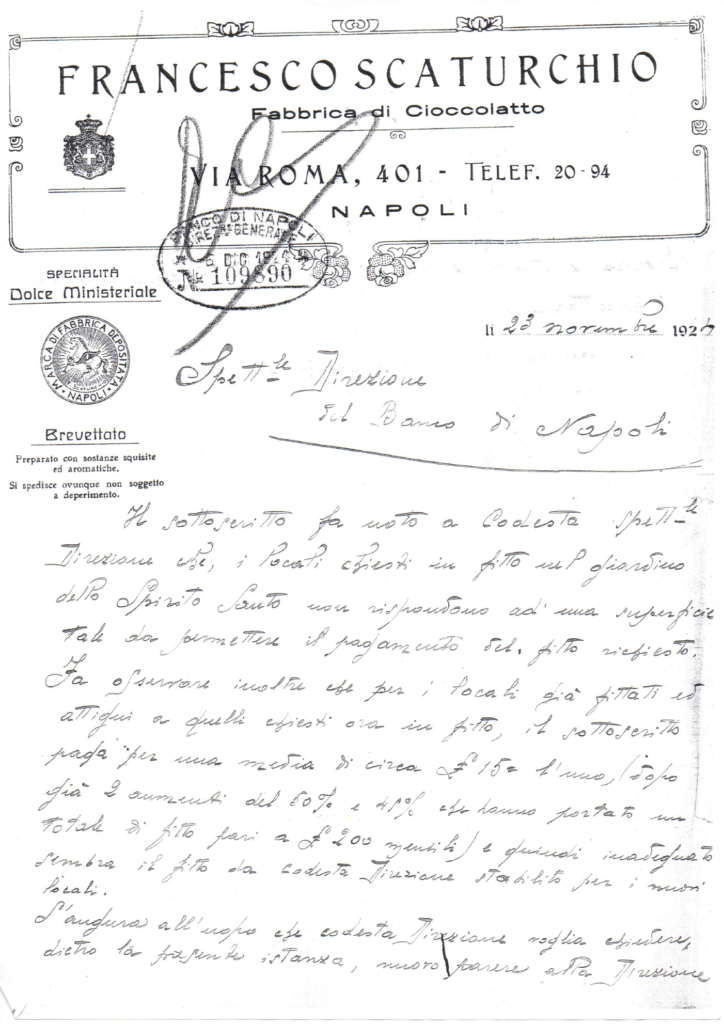 FRANCESCO SCATURCHIO
Fabbrica di Cioccolatto
VIA ROMA, 401 - TELEF. 20-94
NAPOLI
BANCO DI NAPOLI
DIREZ.NE GENERALE
5 DIC 1924
No 109890
SPECIALITÀ
Dolce Ministeriale
MARCA DI FABBRICA DEPOSITATA
NAPOLI
Brevettato
Preparato con sostanze squisite
ed aromatiche.
Si spedisce ovunque non soggetto
a deperimento.
li 23 novembre 1924
Spett-le Direzione
del Banco di Napoli
Il sottoscritto fa noto a Codesta Spett-le
Direzione che, i locali chiesti in fitto nel giardino
dello Spirito Santo non rispondono ad una superficie
tale da permettere il pagamento del fitto richiesto.
Fa osservare inoltre che per i locali già fittati ed
attigui a quelli chiesti ora in fitto, il sottoscritto
paga per una media di circa £ 15= l'uno, (dopo
già 2 aumenti del 50% e 45% che hanno portato un
totale di fitto pari a £ 200 mensili) e quindi inadeguato
sembra il fitto da codesta Direzione stabilito per i nuovi
locali.
S'augura all'uopo che codesta Direzione voglia chiedere,
dietro la presente istanza, nuovo parere alla Direzione